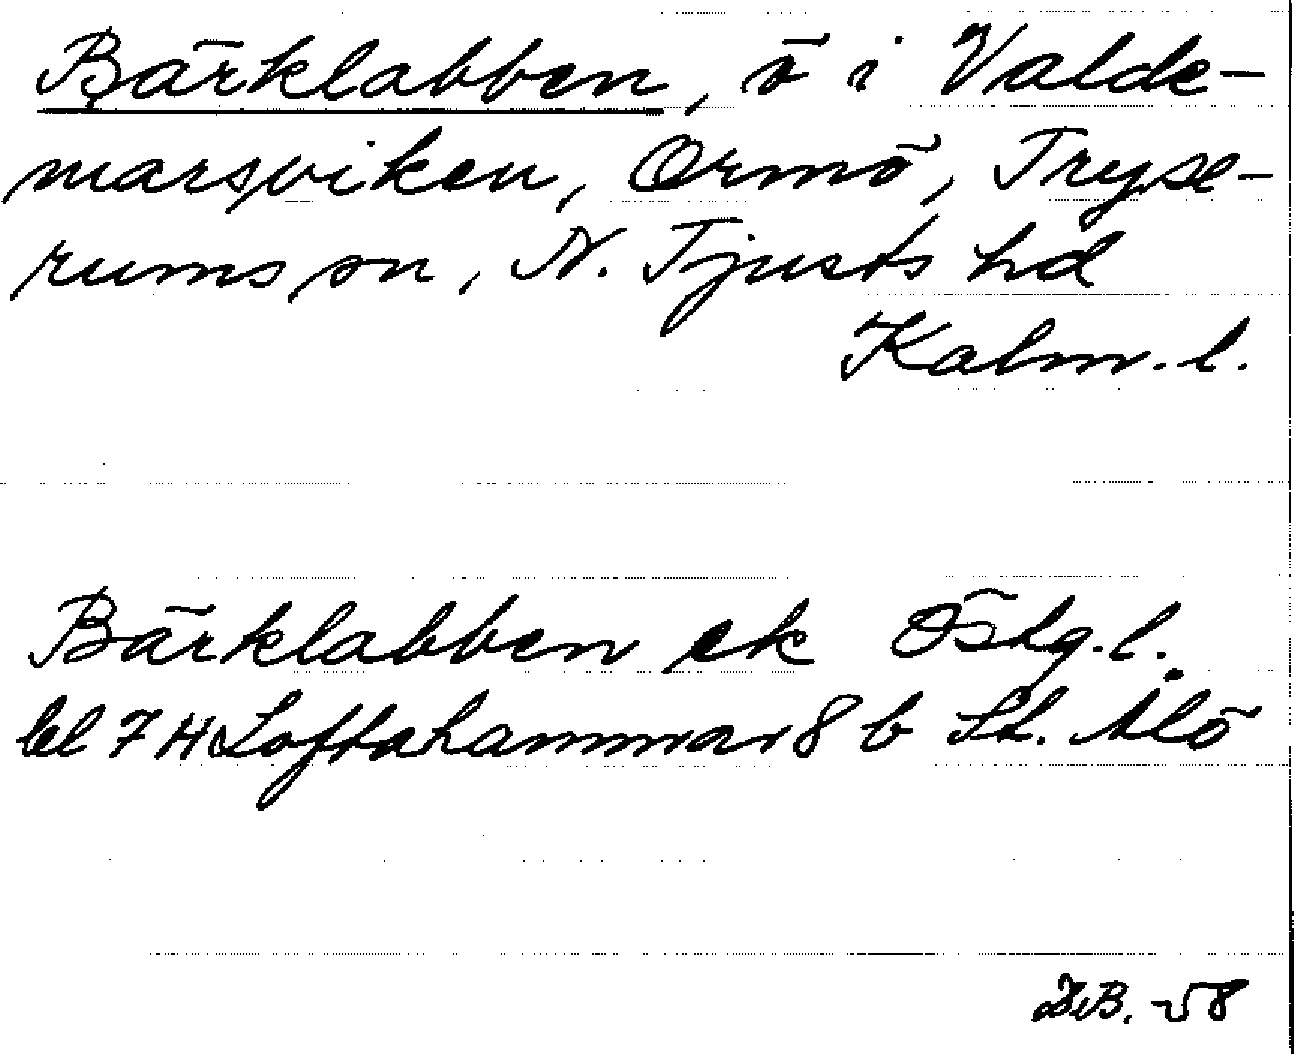 Bärklabben, ö i Valde-
marsviken, Ormö, Tryse-
rums sn, N. Tjusts hd
Kalm. l.
Bärklabben ek Östg. l.
bl 7 H Loftahammar 8 b St. Ålö
-58